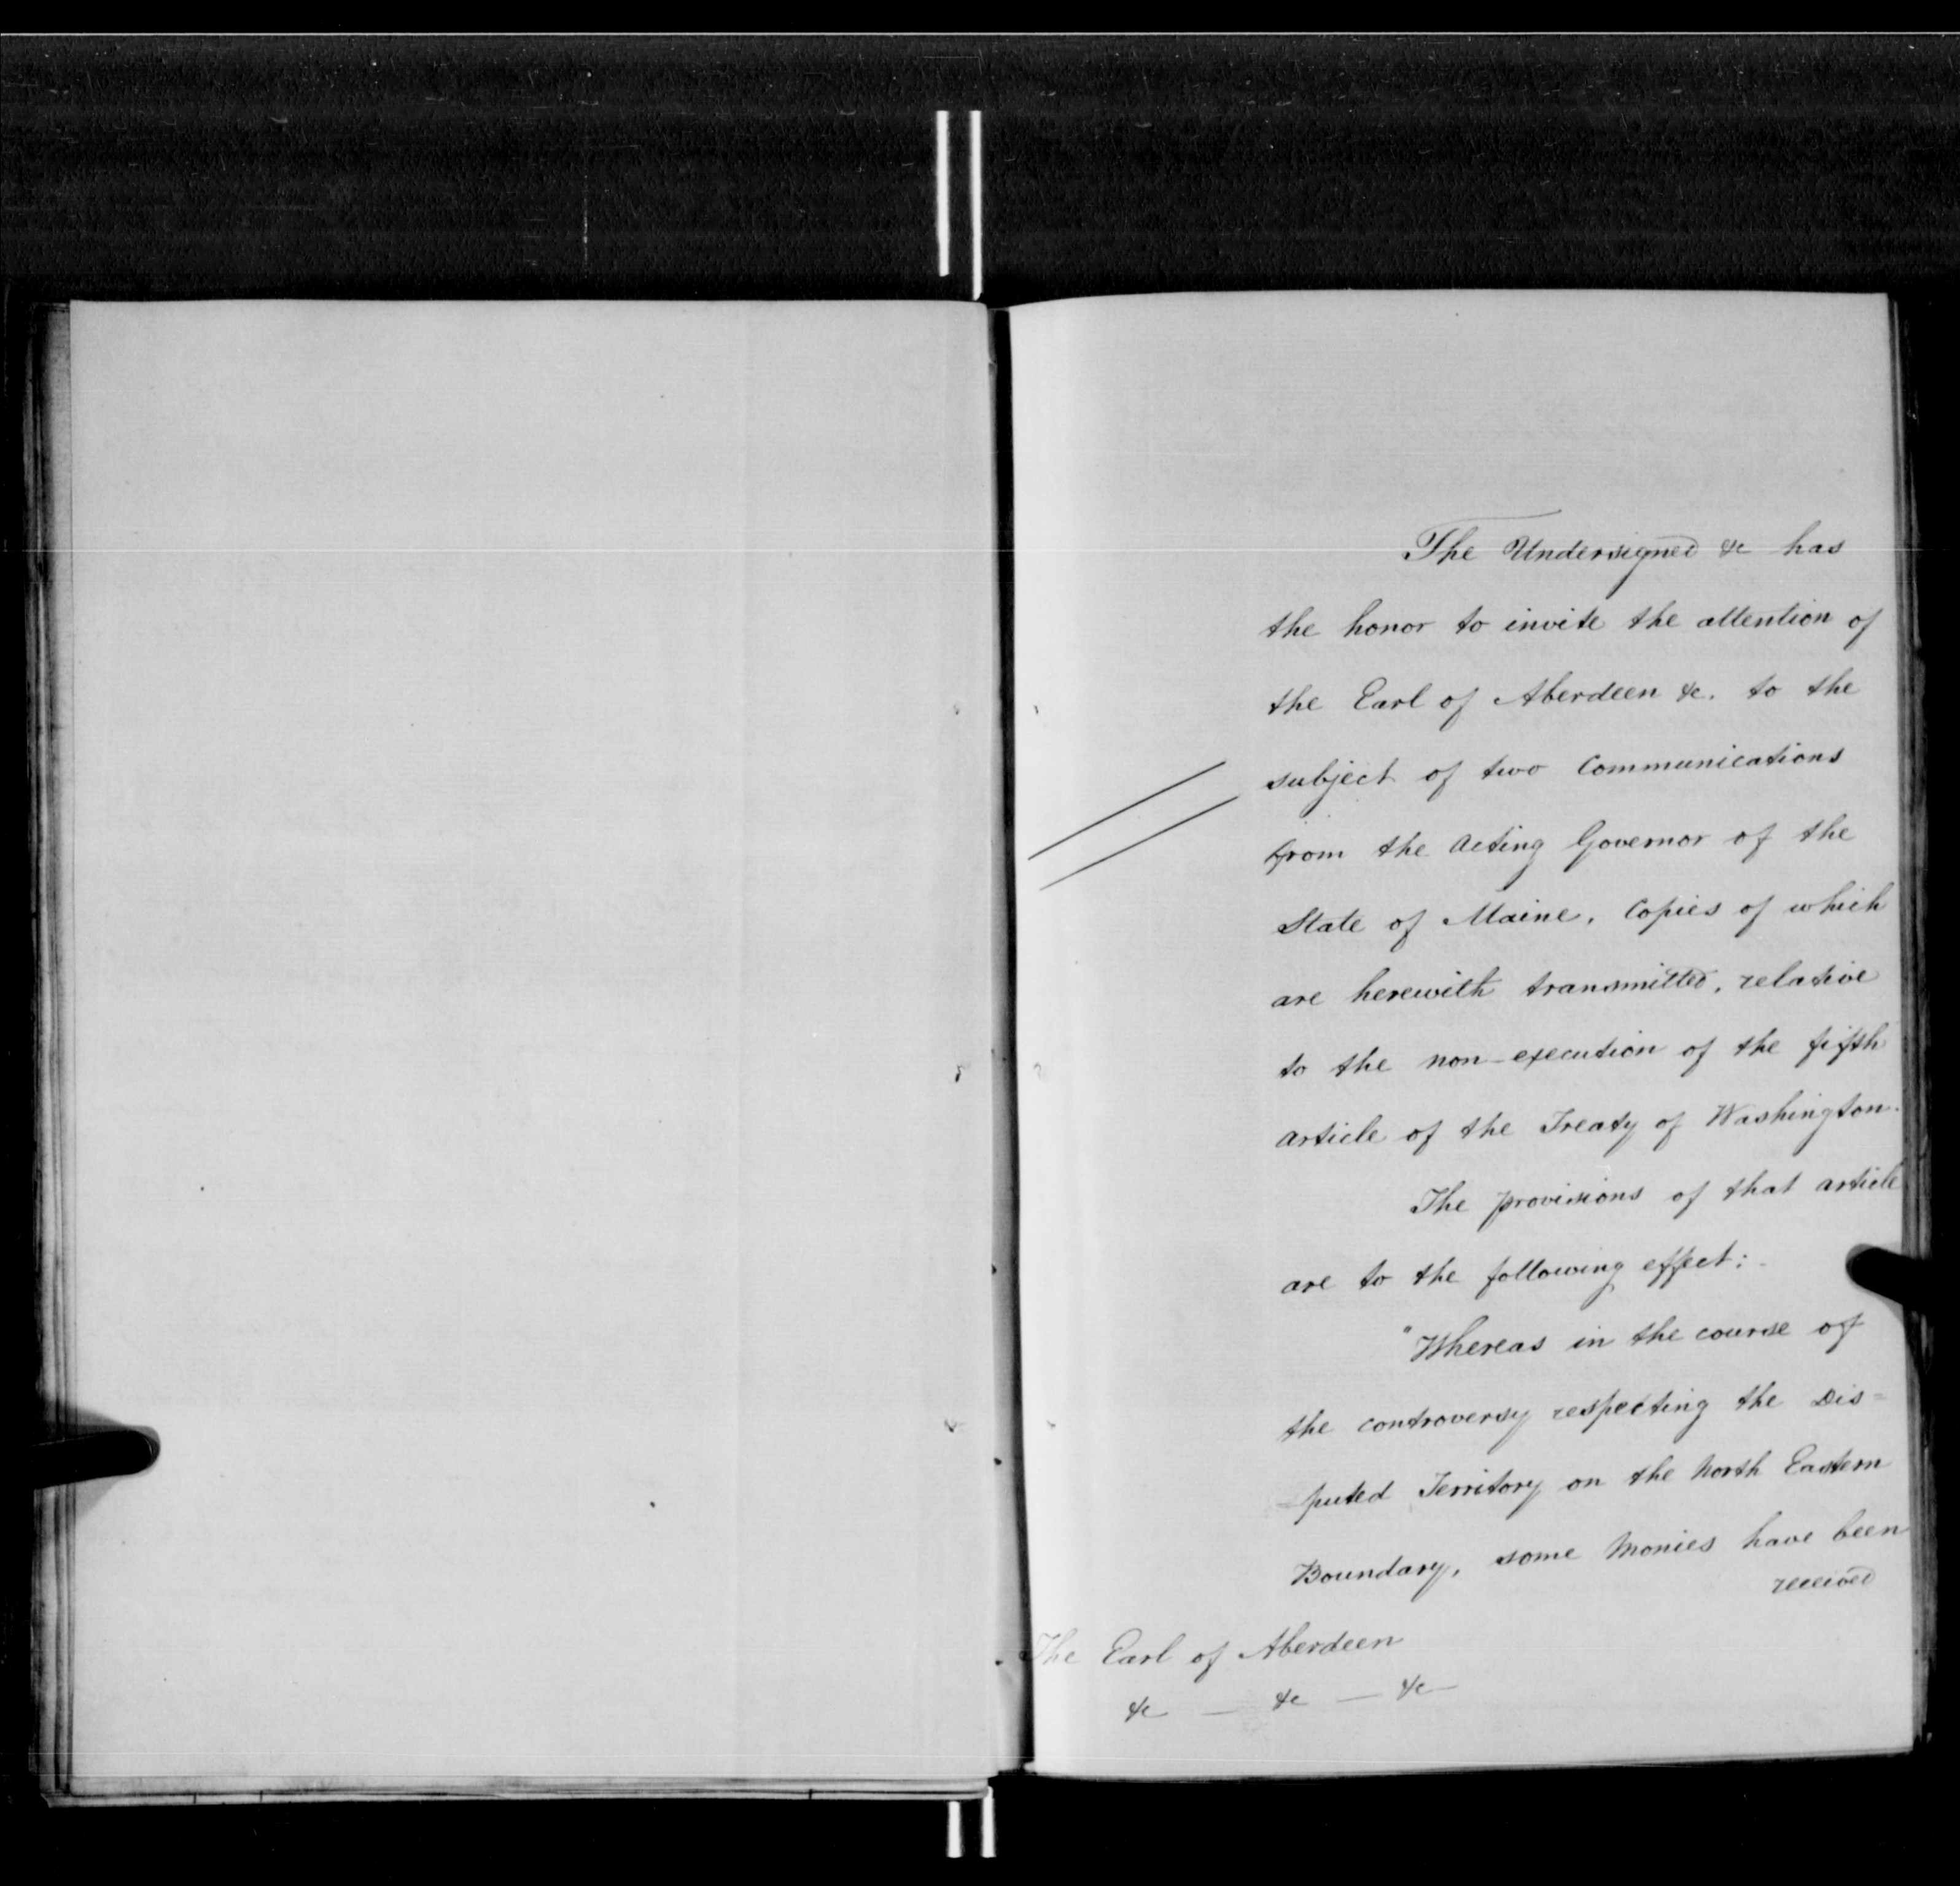 The Undersigned &c has
the honor to invite the attention of
the Earl of Aberdeen &c. to the
subject of two Communications
from the Acting Governor of the
State of Maine, Copies of which
are herewith transmitted, relative
to the non-execution of the fifth
article of the Treaty of Washington.
The provisions of that article
are to the following effect:
"Whereas in the course of
the controversy respecting the Dis=
puted Territory on the North Eastern
Boundary, some Monies have been
received
The Earl of Aberdeen
&c — &c — &c